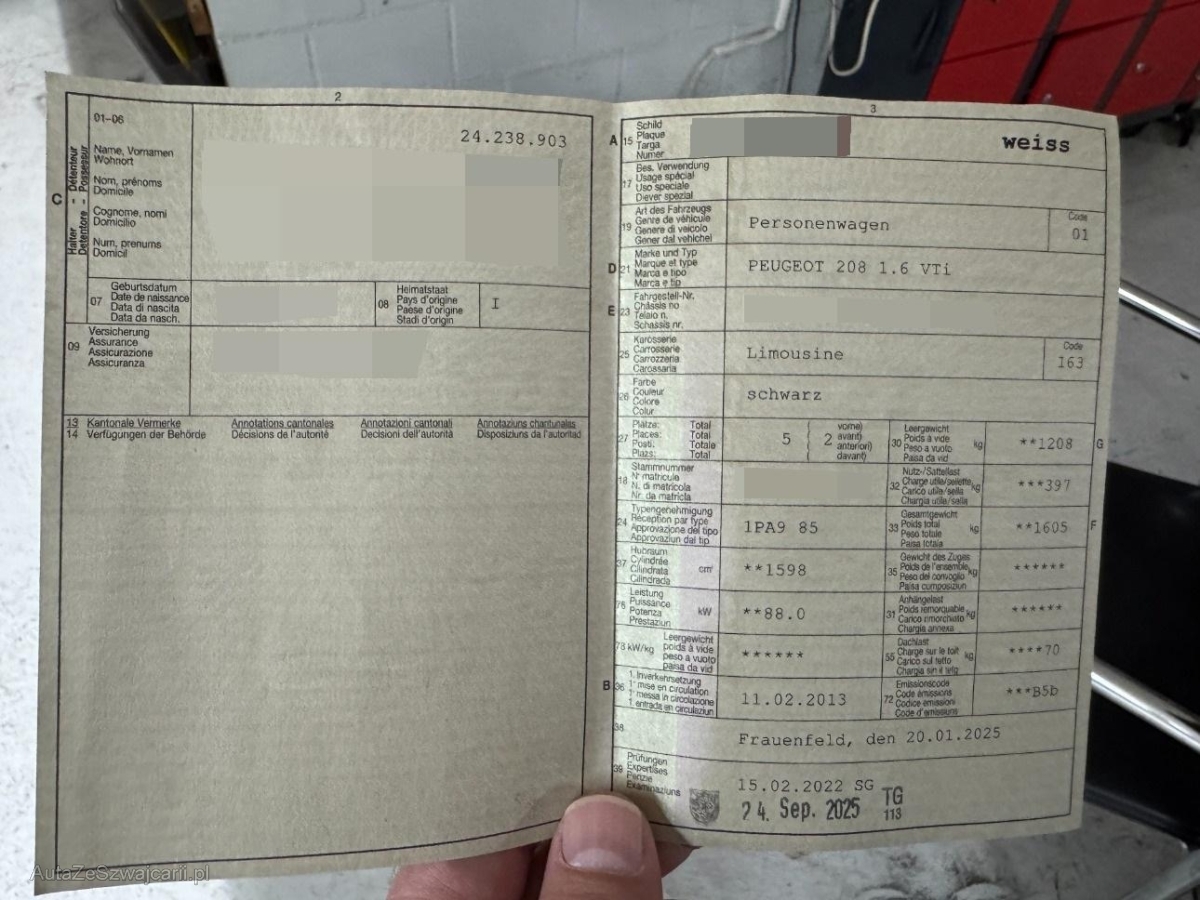 2
01-06
24.238.903
C
Halter - Détenteur
Detentore - Possessur
Name, Vornamen
Wohnort
Nom, prénoms
Domicile
Cognome, nomi
Domicilio
Num, prenums
Domicil
07
Geburtsdatum
Date de naissance
Data di nascita
Data da nasch.
08
Heimatstaat
Pays d'origine
Paese d'origine
Stadi d'origin
I
09
Versicherung
Assurance
Assicurazione
Assicuranza
13 Kantonale Vermerke
14 Verfügungen der Behörde
Annotations cantonales
Décisions de l'autorité
Annotazioni cantonali
Decisioni dell'autorità
Annotaziuns chantunalas
Disposiziuns da l'autoritad
3
A 15
Schild
Plaque
Targa
Numer
weiss
17
Bes. Verwendung
Usage spécial
Uso speciale
Diever spezial
19
Art des Fahrzeugs
Genre de véhicule
Genere di veicolo
Gener dal vehichel
Personenwagen
Code
01
D 21
Marke und Typ
Marque et type
Marca e tipo
Marca e tip
PEUGEOT 208 1.6 VTi
E 23
Fahrgestell-Nr.
Châssis no
Telaio n.
Schassis nr.
25
Karosserie
Carrosserie
Carrozzeria
Carossaria
Limousine
Code
163
26
Farbe
Couleur
Colore
Colur
schwarz
27
Plätze: Total
Places: Total
Posti: Totale
Plazs: Total
5
( 2
vorne)
avant)
anteriori)
davant)
30
Leergewicht
Poids à vide
Peso a vuoto
Paisa da vid
kg
**1208
G
18
Stammnummer
N° matricule
N. di matricola
Nr. da matricla
32
Nutz-/Sattellast
Charge utile/sellette
Carico utile/sella
Chargia utila/sella
kg
***397
24
Typengenehmigung
Réception par type
Approvazione del tipo
Approvaziun dal tip
1PA9 85
33
Gesamtgewicht
Poids total
Peso totale
Paisa totala
kg
**1605
F
37
Hubraum
Cylindrée
Cilindrata
Cilindrada
cm³
**1598
35
Gewicht des Zuges
Poids de l'ensemble
Peso del convoglio
Paisa cumposiziun
kg
******
76
Leistung
Puissance
Potenza
Prestaziun
kW
**88.0
31
Anhängelast
Poids remorquable
Carico rimorchiato
Chargia annexa
kg
******
78 kW/kg
Leergewicht
poids à vide
peso a vuoto
paisa da vid
******
55
Dachlast
Charge sur le toit
Carico sul tetto
Chargia sin il tetg
kg
****70
B 36
1. Inverkehrsetzung
1re mise en circulation
1a messa in circolazione
1. entrada en circulaziun
11.02.2013
72
Emissionscode
Code émissions
Codice emissioni
Code d'emissiuns
***B5b
38
Frauenfeld, den 20.01.2025
39
Prüfungen
Expertises
Perizie
Examinaziuns
15.02.2022 SG
24. Sep. 2025 TG
113
AutaZeSzwajcarii.pl